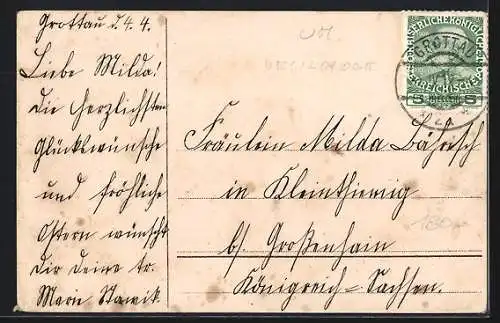 Grottau d. 4. 4.
Liebe Milda!
die Herzlichsten
Glückswünsche
und fröhliche
Ostern wünscht
dir deine tr.
Marie Stawik.
KAISERLICHE KÖNIGLICHE
ÖSTERREICHISCHE
5 5
GROTTAU
Fräulein Milda Bährsch
in Kleinthiemig
b/ Großenhain
Königreich=Sachsen.
180,-